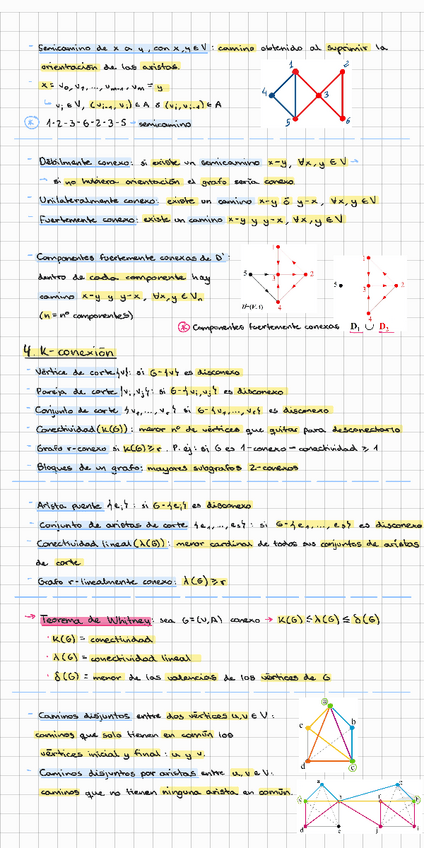 - Semicamino de x a y, con x,y∈V: camino obtenido al suprimir la
orientación de las aristas.
x = v₀, v₁, ..., vₙ₋₁, vₙ = y
vᵢ ∈ V, (vᵢ₋₁, vᵢ) ∈ A ó (vᵢ, vᵢ₋₁) ∈ A
1-2-3-6-2-3-5 → semicamino
1 2
4 3
5 6
- Débilmente conexo: si existe un semicamino x-y, ∀x,y ∈ V →
→ si no hubiera orientación el grafo sería conexo
- Unilateralmente conexo: existe un camino x-y ó y-x, ∀x,y ∈ V
- Fuertemente conexo: existe un camino x-y y y-x, ∀x,y ∈ V
- Componentes fuertemente conexas de D:
dentro de cada componente hay
camino x-y y y-x, ∀x,y ∈ Vₙ
(n = nº componentes)
5 3 2
4
5 3 2
4
Componentes fuertemente conexas D₁ ∪ D₂
4. K-conexión
- Vértice de corte {v}: si G-{v} es disconexo
- Pareja de corte {vᵢ, vⱼ}: si G-{vᵢ, vⱼ} es disconexo
- Conjunto de corte {v₁, ..., vᵣ} si G-{v₁, ..., vᵣ} es disconexo
- Conectividad (K(G)): menor nº de vértices que quitar para desconectarlo
- Grafo r-conexo si K(G) ≥ r. P. ej: si G es 1-conexo → conectividad ≥ 1
- Bloques de un grafo: mayores subgrafos 2-conexos
- Arista puente {eᵢ}: si G-{eᵢ} es disconexo
- Conjunto de aristas de corte {e₁, ..., eₛ}: si G-{e₁, ..., eₛ} es disconexo
- Conectividad lineal (λ(G)): menor cardinal de todos sus conjuntos de aristas
de corte
- Grafo r-linealmente conexo: λ(G) ≥ r
→ Teorema de Whitney: sea G=(V,A) conexo → K(G) ≤ λ(G) ≤ δ(G)
· K(G) = conectividad
· λ(G) = conectividad lineal
· δ(G) = menor de las valencias de los vértices de G
- Caminos disjuntos entre dos vértices u,v ∈ V:
caminos que solo tienen en común los
vértices inicial y final: u y v.
- Caminos disjuntos por aristas entre u,v ∈ V:
caminos que no tienen ninguna arista en común.
a
c b
d e